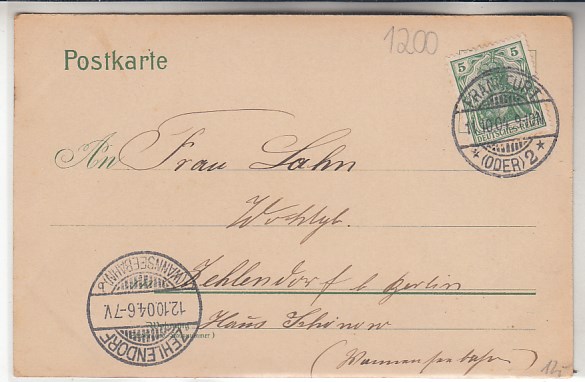 1200
Postkarte
5 5
FRANKFURT
11.10.04. 9-10N.
* (ODER) 2 *
An Frau Lahn
Wohlgb.
Zehlendorf b Berlin
Haus Schönow
(Wannseebahn)
ZEHLENDORF
12.10.04.6-7V
(WANNSEEBAHN)
12,-